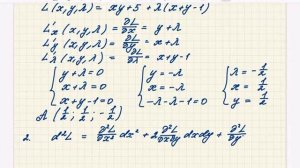 L(x,y,λ) = xy+5 + λ(x+y-1)
L'x(x,y,λ) = ∂L/∂x = y+λ
L'y(x,y,λ) = ∂L/∂y = x+λ
L'λ(x,y,λ) = ∂L/∂λ = x+y-1
{ y+λ=0 { y=-λ { λ=-1/2
{ x+λ=0 { x=-λ { x=1/2
{ x+y-1=0 { -λ-λ-1=0 { y=1/2
A(1/2; 1/2; -1/2)
2. d²L = ∂²L/∂x² dx² + 2 ∂²L/∂x∂y dxdy + ∂²L/∂y²